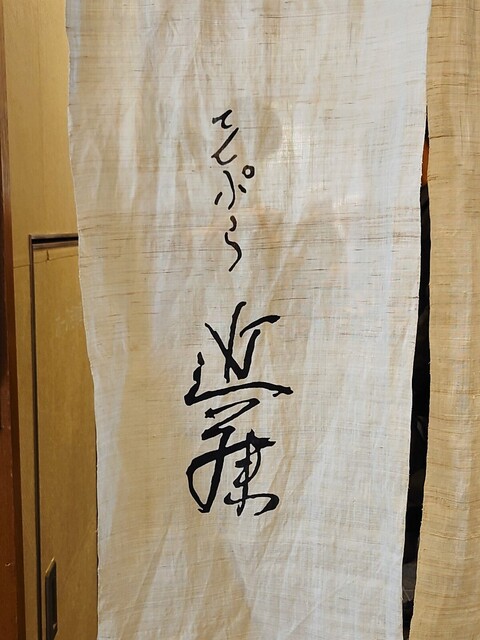 てんぷら 近藤